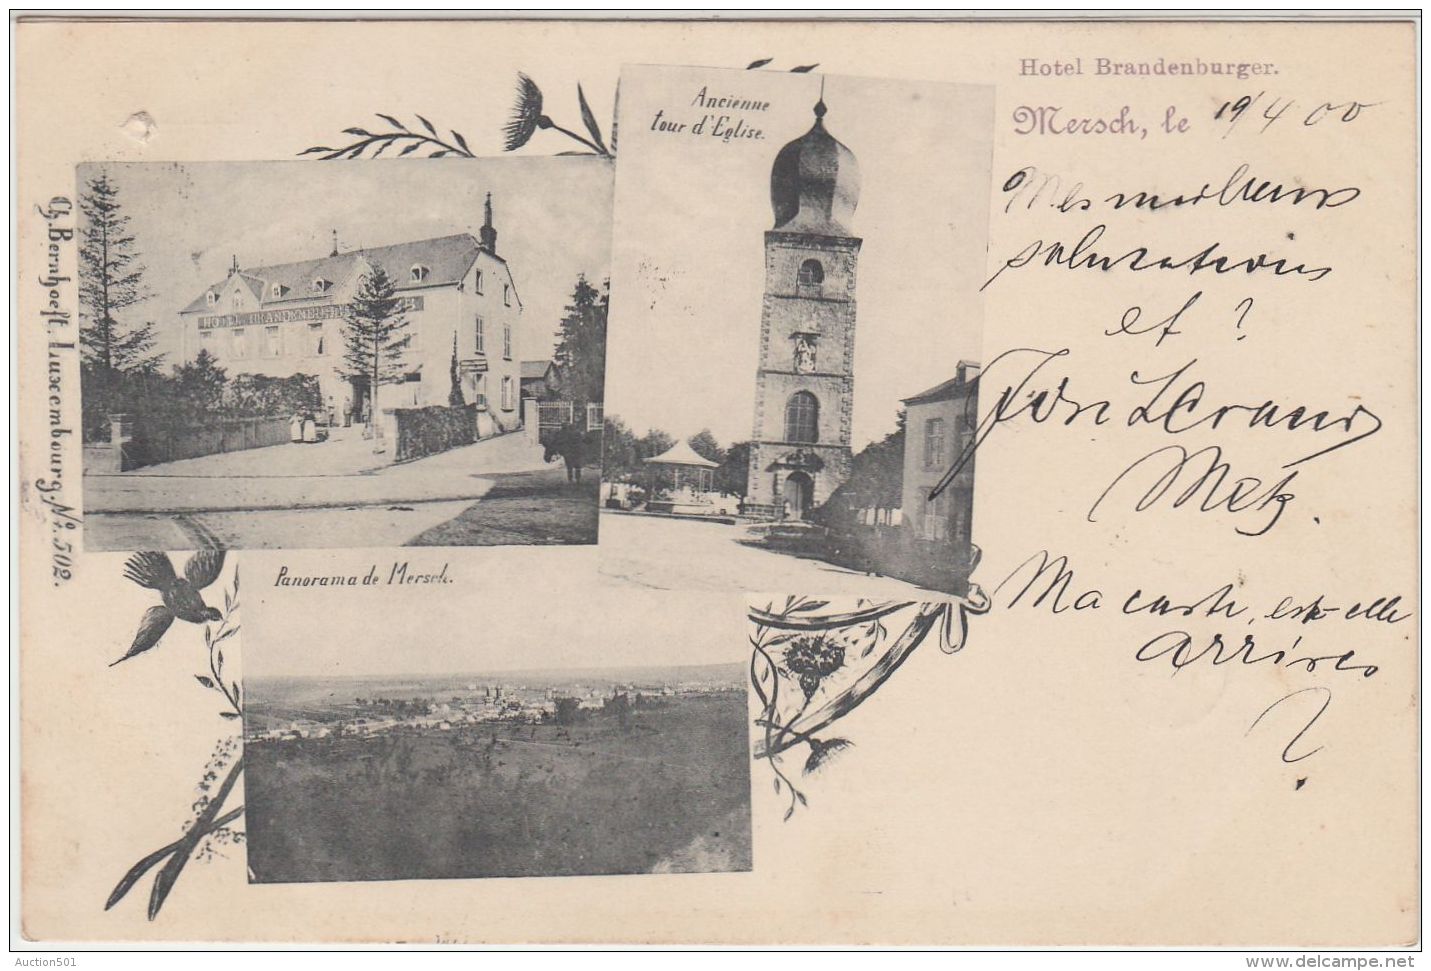 Hotel Brandenburger.
Mersch, le 19/4 00
Ancienne
tour d'Eglise.
HOTEL BRANDENBURGER
Ch. Bernhoeft, Luxembourg. No. 502.
Panorama de Mersch.
Mes meilleures
salutations
et ?
Metz.
Ma carte, est-elle
arrivée
?
Auction501
http://www.delcampe.net